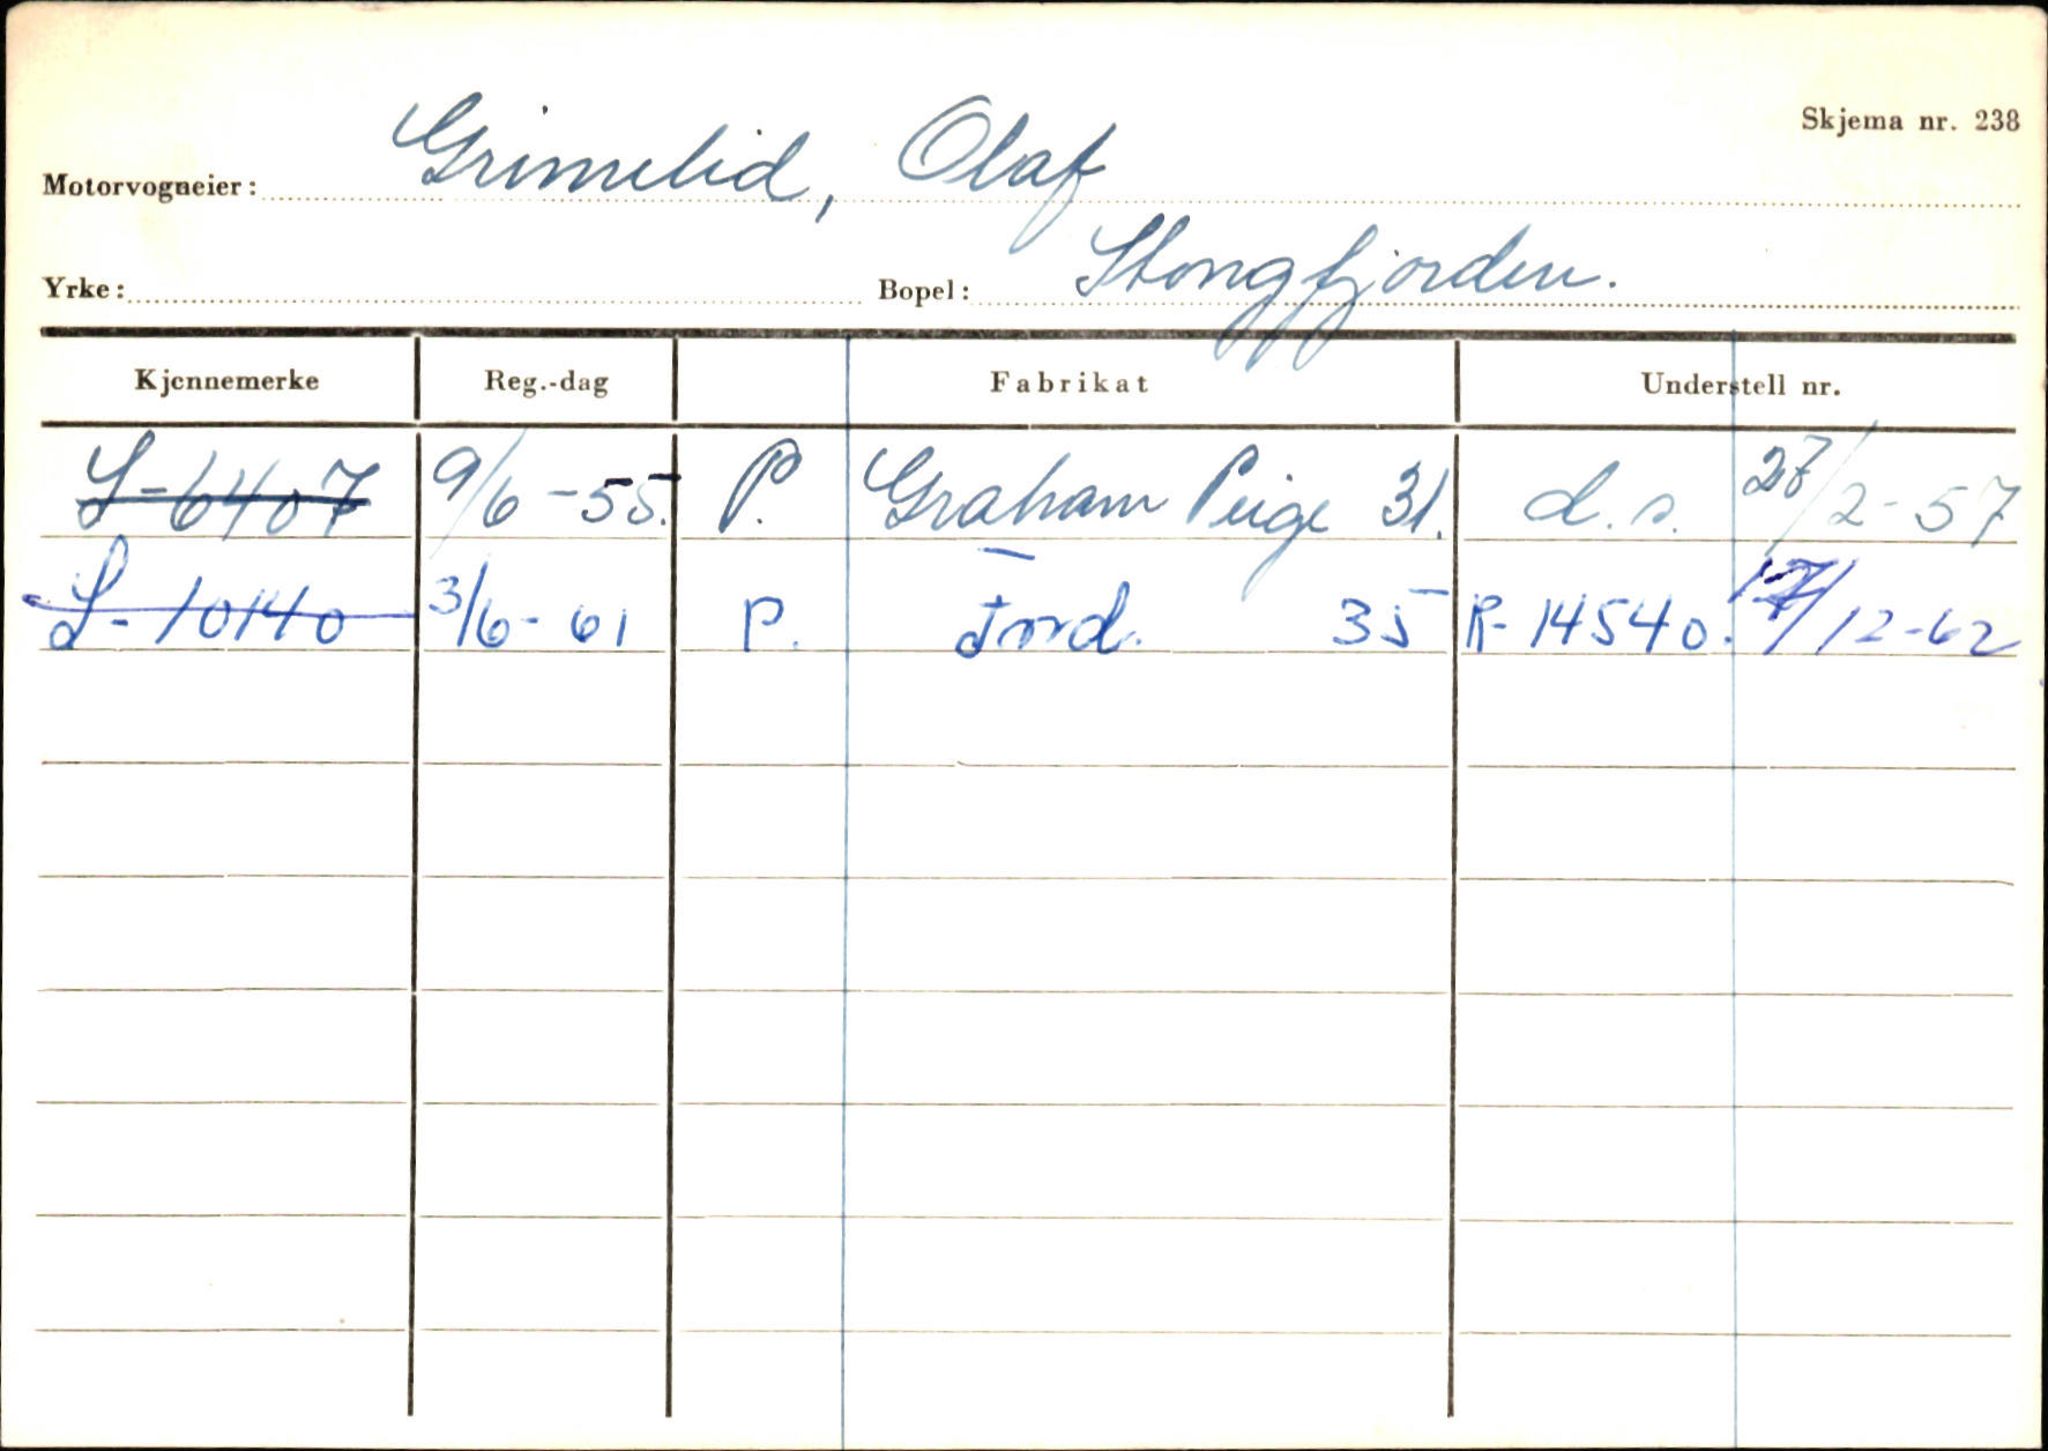 Skjema nr. 238
Motorvogneier: Grimelid, Olaf
Yrke: Bopel: Stongfjorden.
Kjennemerke Reg.-dag Fabrikat Understell nr.
S-6407 9/6-55. P. Graham Peige 31. d.s. /2-57
S-10140 3/6-61 P. Ford. 35 R-14540. /12-62